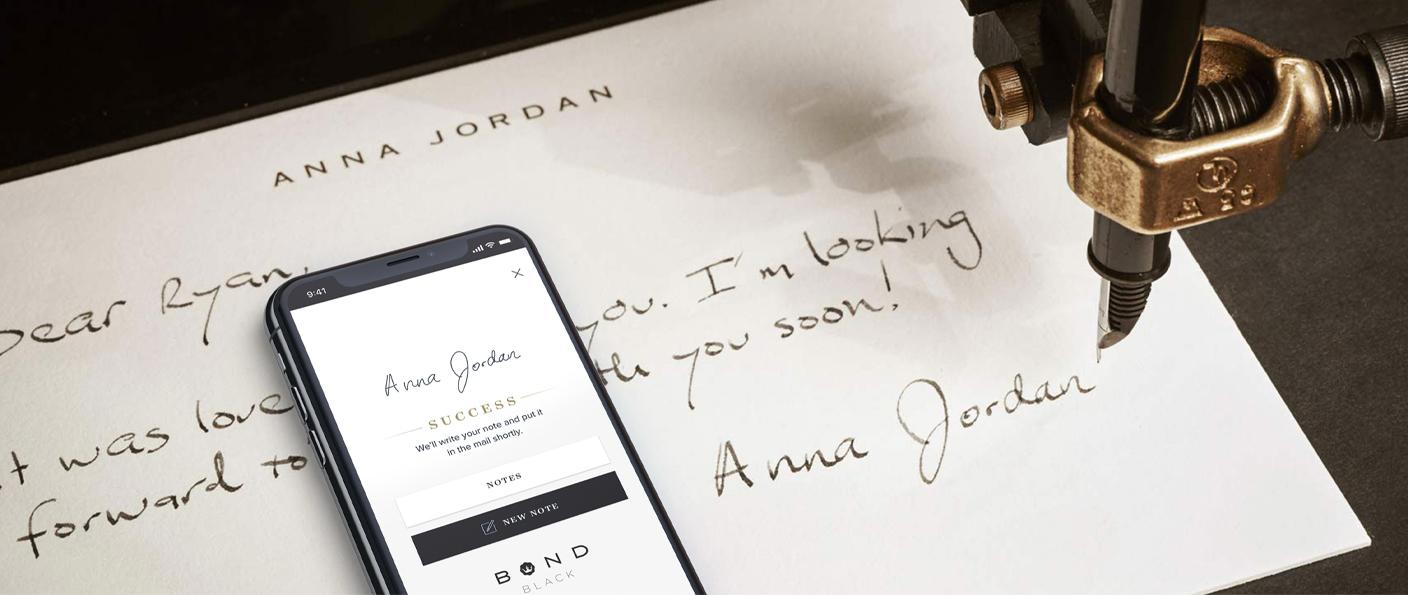 ANNA JORDAN
Dear Ryan,
was you. I'm looking
forward to you soon!
Anna Jordan
9:41
Anna Jordan
SUCCESS
We'll write your note and put it
in the mail shortly.
NOTES
NEW NOTE
BOND
BLACK